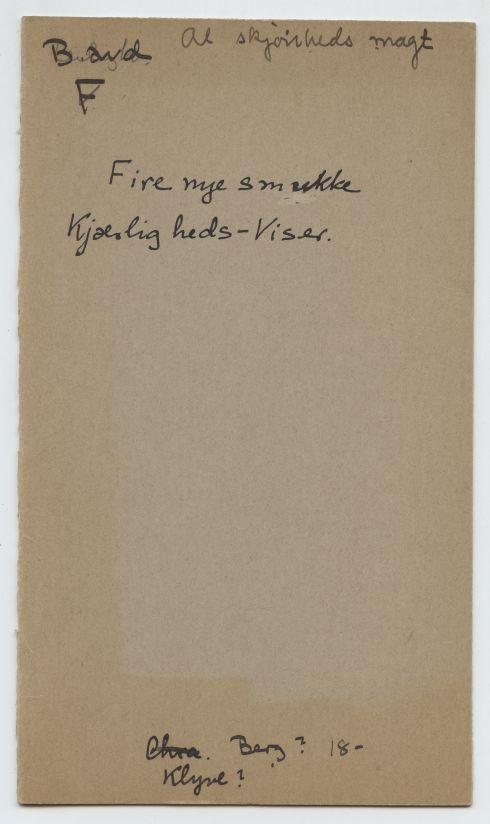 Al skjönheds magt
F
Fire nye smukke
Kjærligheds-Viser.
Chra. Berg? 18-
Klyve?